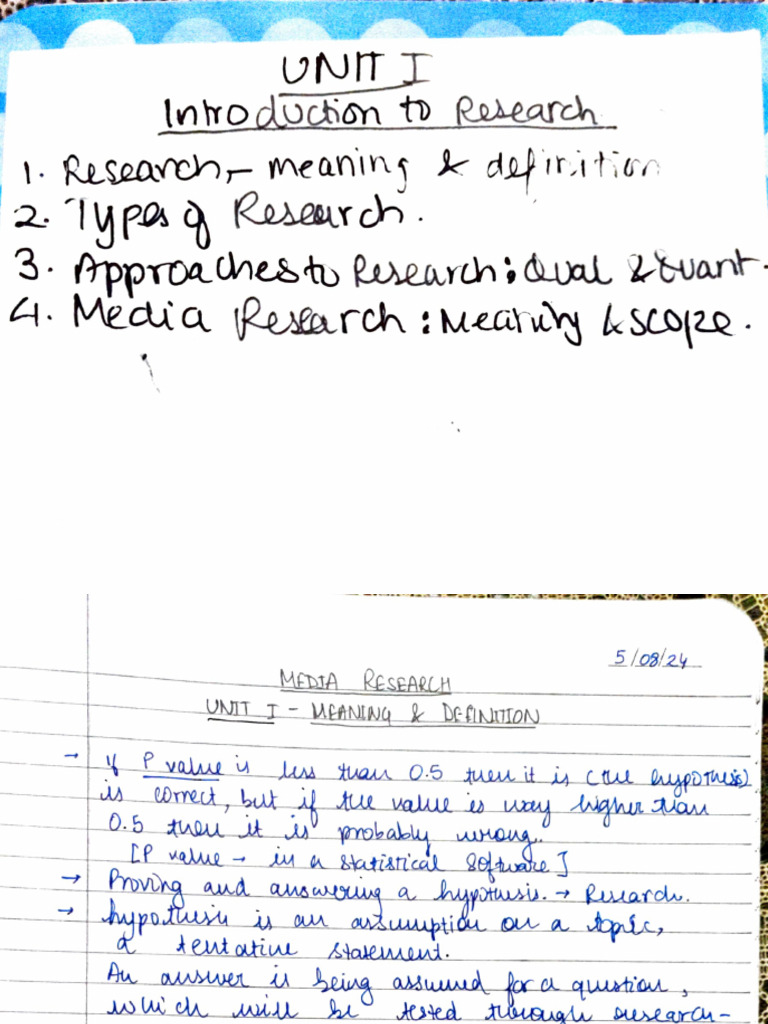 UNIT I
Introduction to Research
1. Research,- meaning & definition
2. Types of Research.
3. Approaches to Research: Qual & Quant.
4. Media Research: Meaning & scope.
5/08/24
MEDIA RESEARCH
UNIT I - MEANING & DEFINITION
→ If P value is less than 0.5 then it is (the hypothesis)
is correct, but if the value is way higher than
0.5 then it is probably wrong.
[P value → in a statistical software]
→ Proving and answering a hypothesis. → Research.
→ hypothesis is an assumption on a topic,
a tentative statement.
An answer is being assumed for a question,
which will be tested through research-